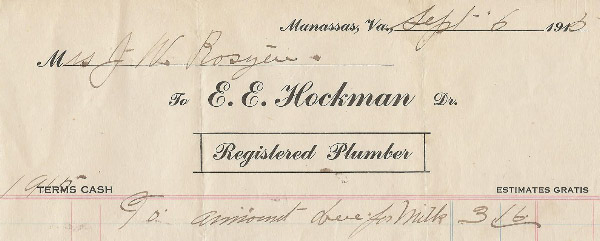 Manassas, Va., Sept 6 1913
Mrs J W. Rosyer.
To E. E. Hockman Dr.
Registered Plumber
TERMS CASH ESTIMATES GRATIS
To amount due for Milk 3 16